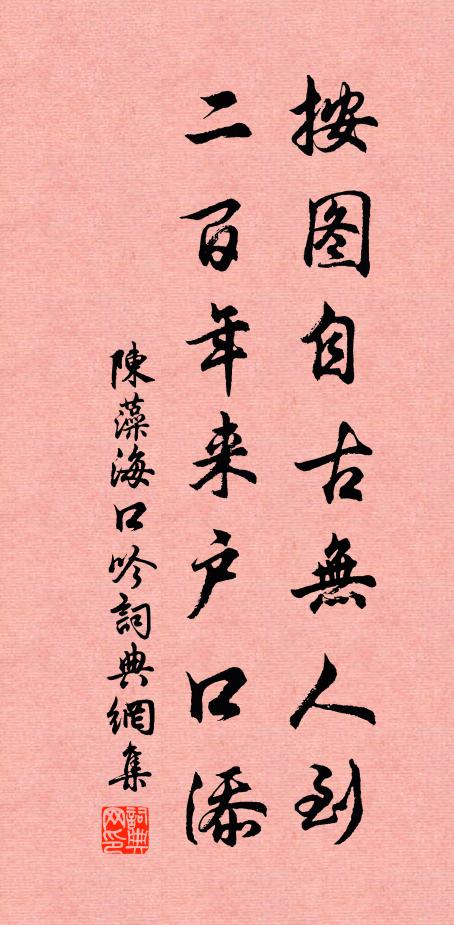 按图自古無人到
二百年来户口添
陳藻海口吟詞典網集
詞典网印